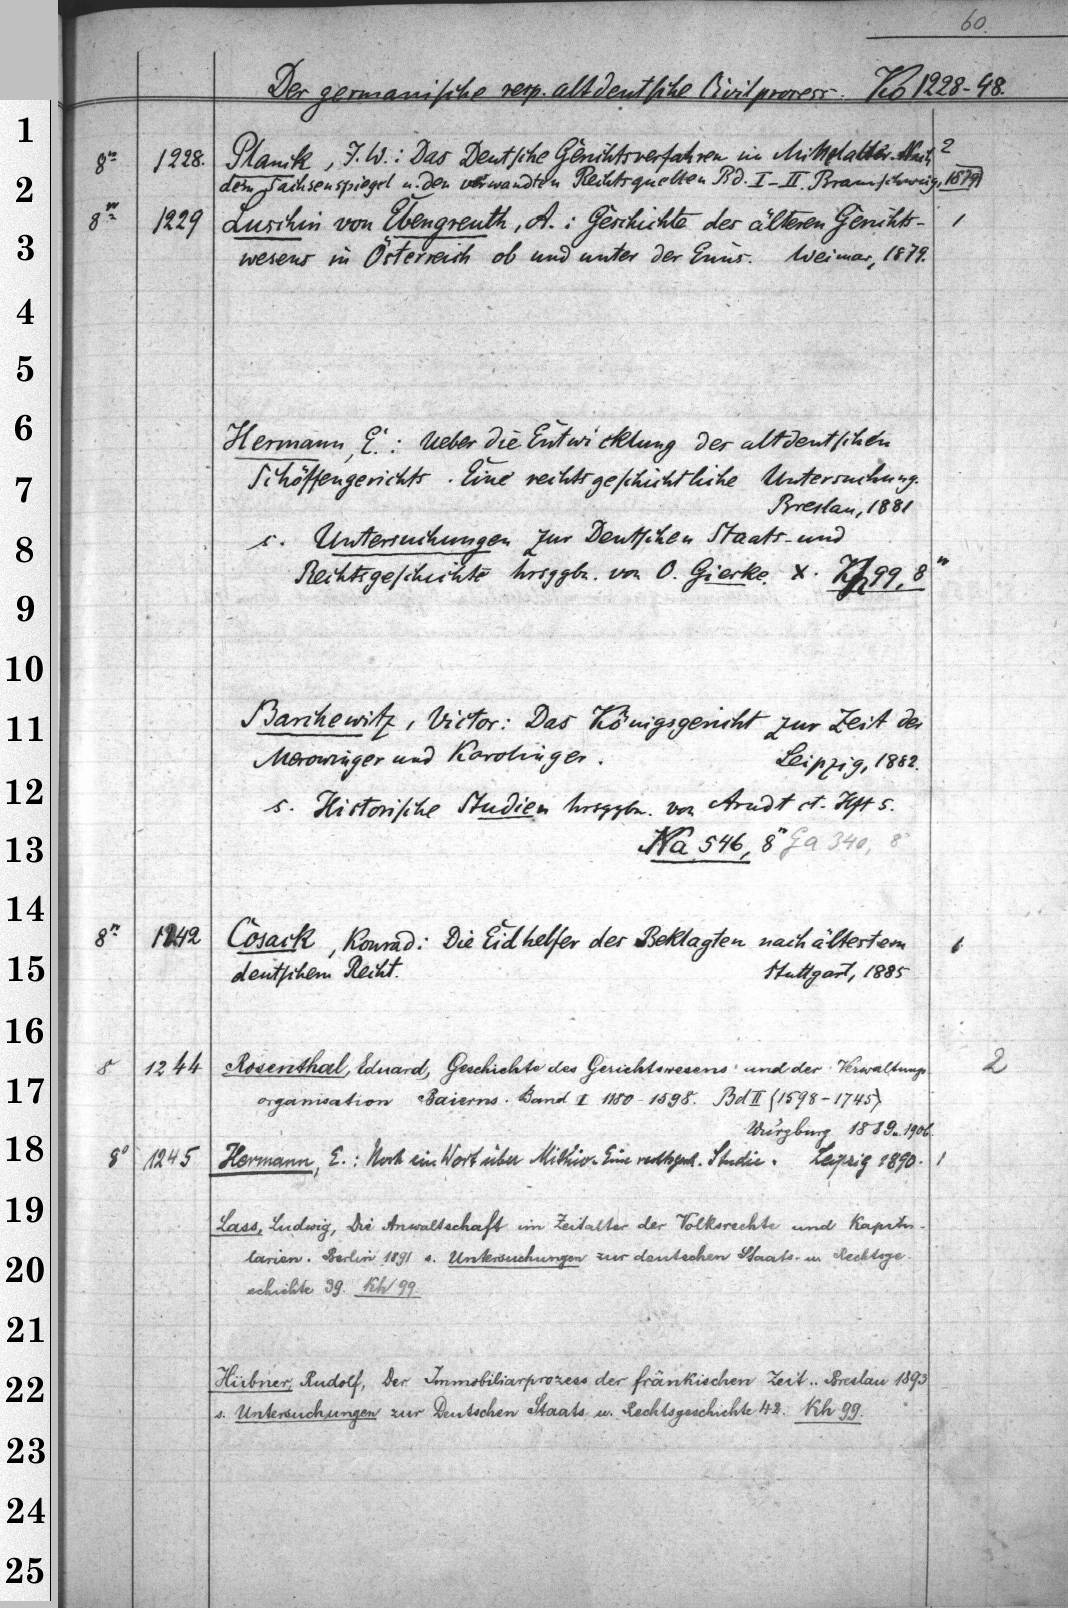 60.
Der germanische resp. altdeutsche Civilprocess. Ko 1228-48.
8° 1228. Planck, J. W.: Das Deutsche Gerichtsverfahren im Mittelalter. Nach 2
dem Sachsenspiegel u. den verwandten Rechtsquellen Bd. I-II. Braunschweig, 1879
8° 1229 Luschin von Ebengreuth, A.: Geschichte des älteren Gerichts- 1
wesens in Österreich ob und unter der Enns. Weimar, 1879.
Hermann, E.: Ueber die Entwicklung des altdeutschen
Schöffengerichts. Eine rechtsgeschichtliche Untersuchung.
Breslau, 1881
s. Untersuchungen zur Deutschen Staats- und
Rechtsgeschichte hrsggbn. von O. Gierke. X. Kh 99, 8°
Barchewitz, Victor: Das Königsgericht zur Zeit der
Merowinger und Karolinger. Leipzig, 1882.
s. Historische Studien hrsggbn. von Arndt et. Hft 5.
Na 546, 8° Ga 340, 8°
8° 1242 Cosack, Konrad: Die Eidhelfer des Beklagten nach ältestem 1
deutschem Recht. Stuttgart, 1885
8° 1244 Rosenthal, Eduard, Geschichte des Gerichtswesens und der Verwaltungs 2
organisation Baierns. Band I 1180-1598. Bd II (1598-1745)
Würzburg 1889 u. 1906.
8° 1245 Hermann, E.: Noch ein Wort über Mithio. Eine rechtsgesch. Studie. Leipzig 1890. 1
Lass, Ludwig, Die Anwaltschaft im Zeitalter der Volksrechte und Kapitu-
larien. Berlin 1891 s. Untersuchungen zur deutschen Staats- u. Rechtsge
schichte 39. Kh 99
Hübner, Rudolf, Der Immobiliarprozess der fränkischen Zeit.. Breslau 1893
s. Untersuchungen zur Deutschen Staats u. Rechtsgeschichte 42. Kh 99.
1
2
3
4
5
6
7
8
9
10
11
12
13
14
15
16
17
18
19
20
21
22
23
24
25